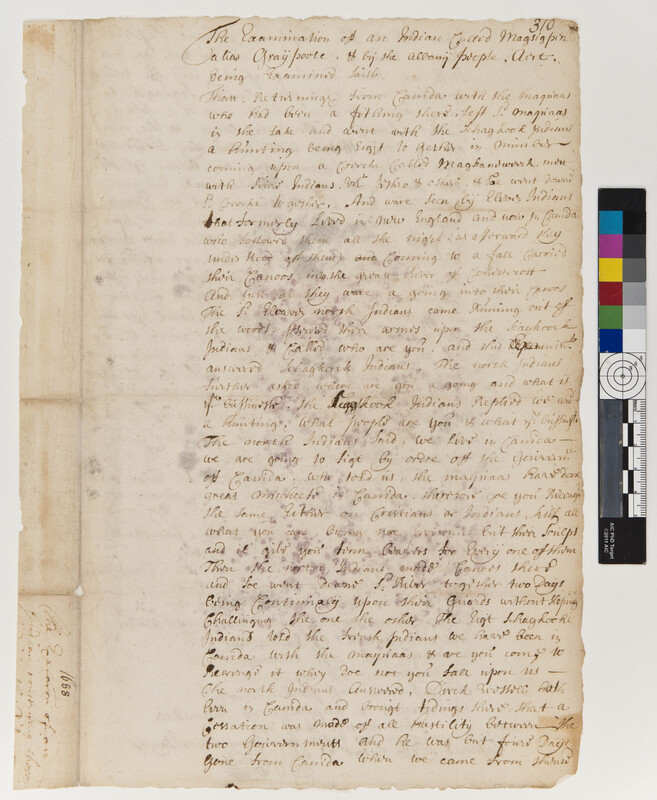 310
The Examination of an Indian Called Magsigpen
alias Graypoole & by the albany people Aert.
being Examined saith
Thatt Returning from Canida with the Maquaas
who had been a fitting there, left Sd. Maquaas
in the lake and went with the Schaghook Indians
a Hunting being Eight to gether in number
coming upon a Creeke Called Maghanweeck mett
with Indians, & Soe went downe
Sd. Creeke together. And ware seen by Eleven Indians
that formerly Lived in new England and now in Canida
who followed them all the night as afterward they
understood of them and Comming to a fall Carried
their Canoos into the great River of
And just as they ware a going into their Canoos
The Sd. Eleaven north Indians came Running out off
the woods, their armes upon the Skachook
Indians & Called who are you, and this
answered Schaghook Indians. The north Indians
further asked where are you a going and what is
yr. bussinesse. The Skaghook Indians Replied we are
a Hunting, what people are you & what yr bussinesse
The north Indians said, we live in Canida
we are going to figt by ordre off the Gouvernr
off Canida, who told us, the maquaas have done
great mischeefe in Canida, therefore doe you Revenge
the same Either on Crestians or Indians, kill all
what you can bring noe but their Sculps
and il give you tenn beavers for Every one of them
Then the north Indians made Canoos there
and soe went downe Sd. River together two Days
being Continualy upon their Guards without sleeping
Challinging the one the other. The Eigt Schaghooke
Indians told the french Indians we have been in
Canida with the maquaas & are you comeing to
Revenge it whey doe not you fall upon us
The north Indians Answered, Dirck Wessells hath
been in Canida and brougt tidings there that a
Cessation was made of all Hostility between the
two Gouvernments and he was but foure Days
gone from Canida when we came from thence
1688
The Examn. of an
Indian